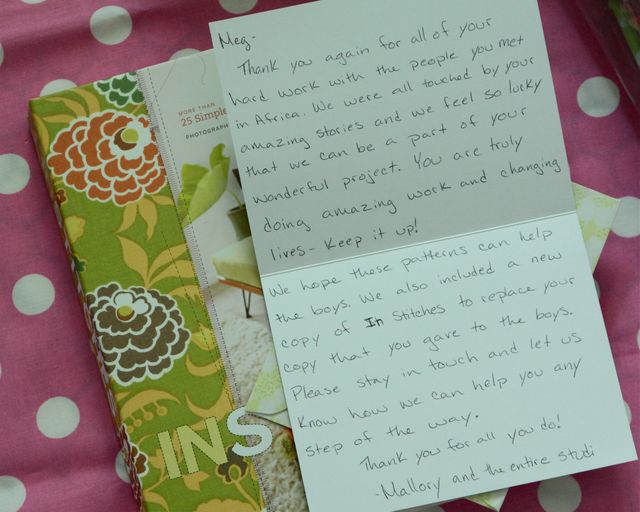 Meg-
Thank you again for all of your
hard work with the people you met
in Africa. We were all touched by your
amazing stories and we feel so lucky
that we can be a part of your
wonderful project. You are truly
doing amazing work and changing
lives- Keep it up!
We hope these patterns can help
the boys. We also included a new
copy of In Stitches to replace your
copy that you gave to the boys.
Please stay in touch and let us
know how we can help you any
step of the way.
Thank you for all you do!
-Mallory and the entire studi
MORE THAN
25 Simple
PHOTOGRAPH
INS